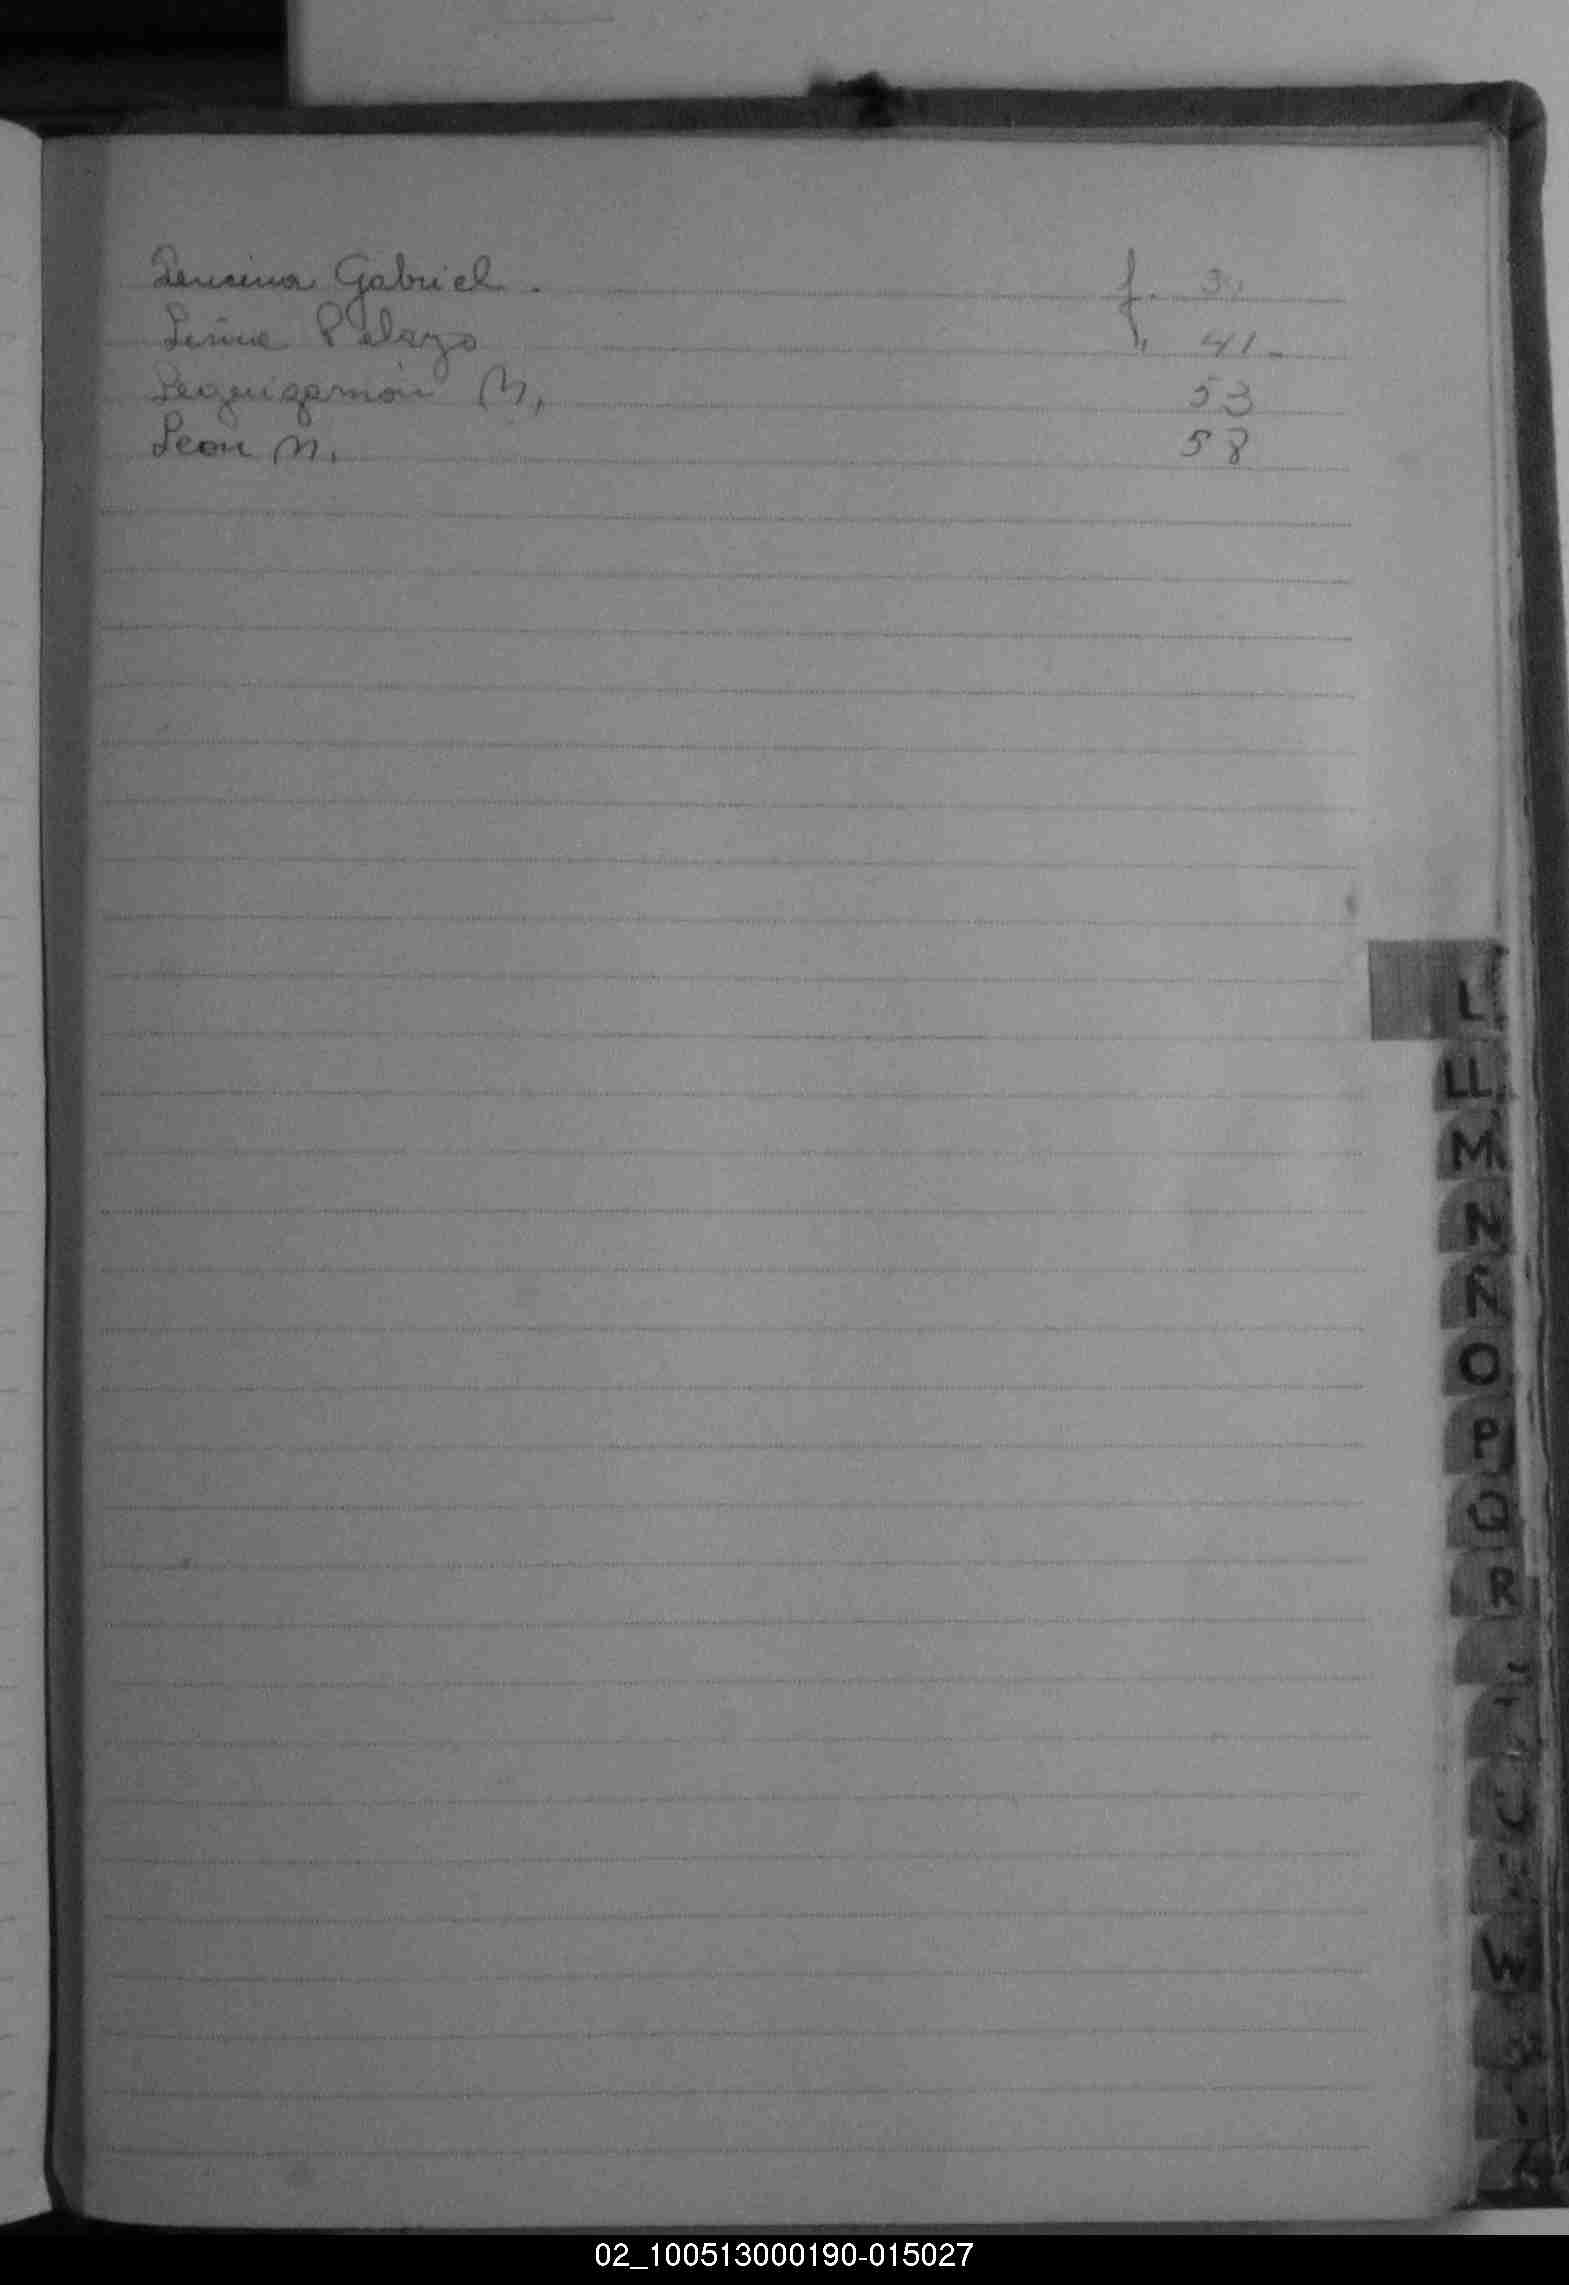 Lencina Gabriel. f. 3
Pelayo f. 41.
Leguizamón M. 53
Leon M. 58
L
LL
M
N
Ñ
O
P
Q
R
U
W
02_100513000190-015027